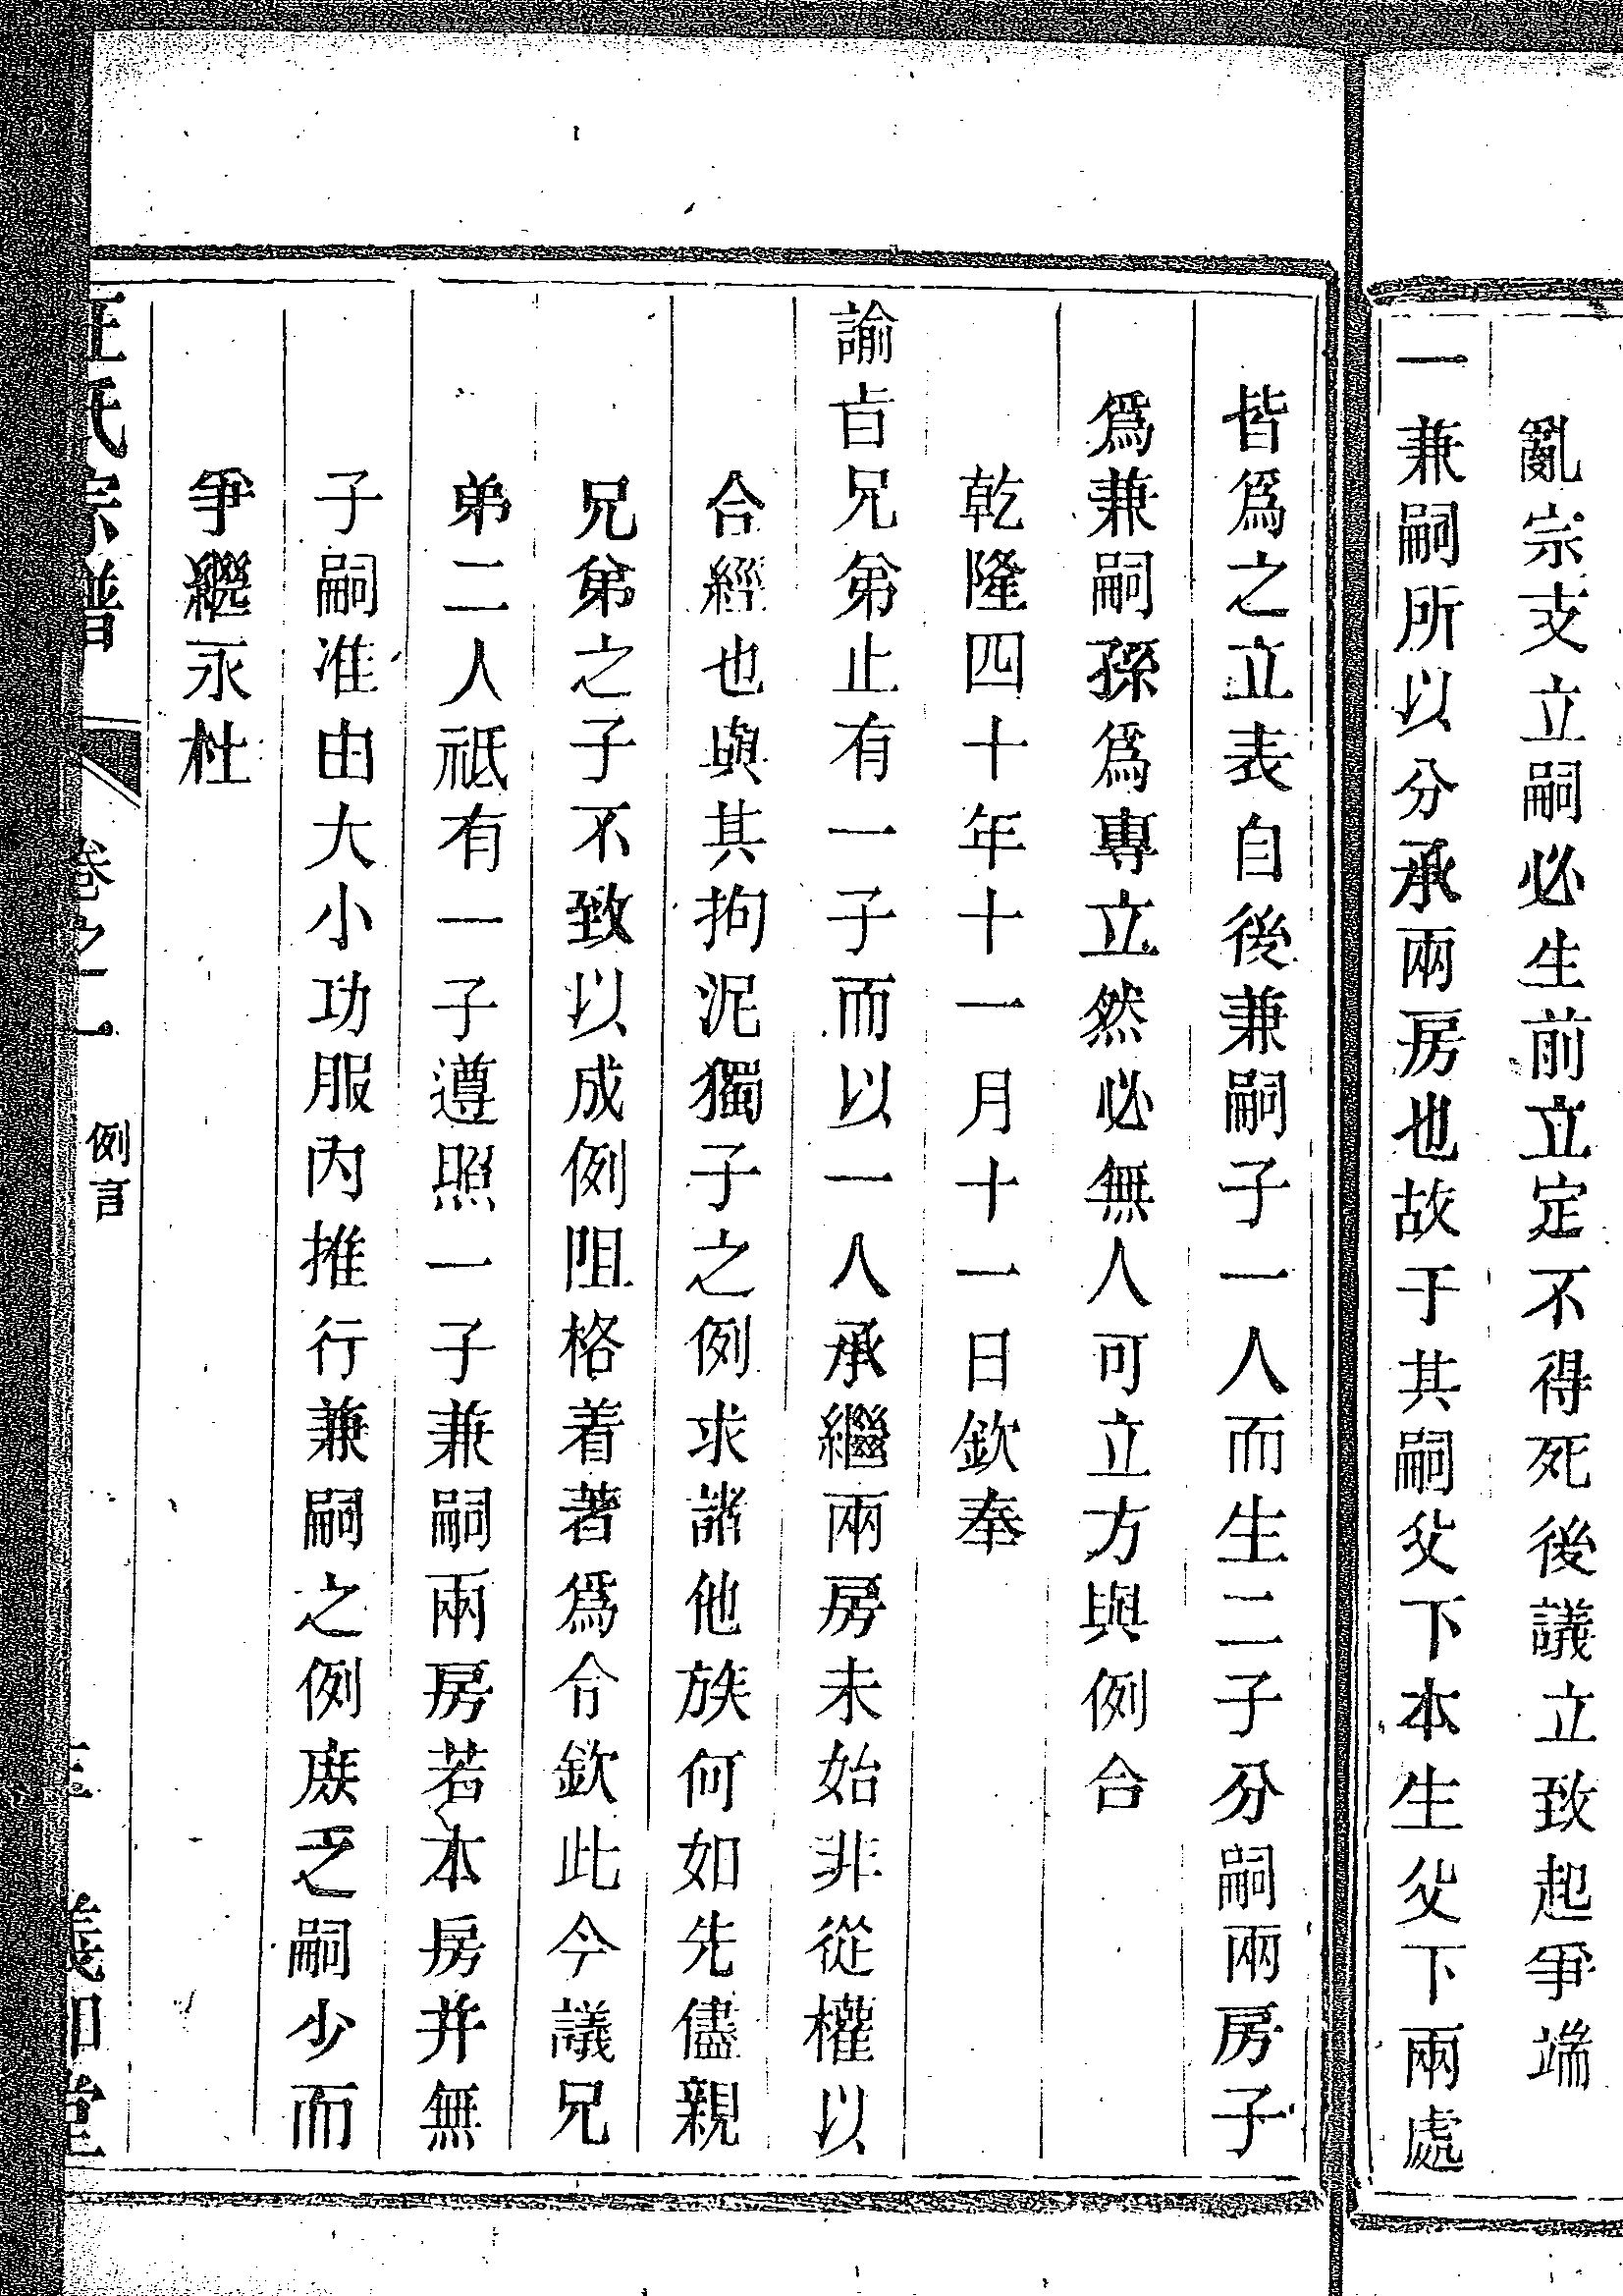 亂宗支立嗣必生前立定不得死後議立致起爭端
一兼嗣所以分承兩房也故于其嗣父下本生父下兩處
皆爲之立表自後兼嗣子一人而生二子分嗣兩房子
爲兼嗣孫爲專立然必無人可立方與例合
乾隆四十年十一月十一日欽奉
諭㫖兄弟止有一子而以一人承繼兩房未始非從權以
合經也與其拘泥獨子之例求諸他族何如先儘親
兄弟之子不致以成例阻格着著爲令欽此今議兄
弟二人祗有一子遵照一子兼嗣兩房若本房并無
子嗣准由大小功服内推行兼嗣之例庻乏嗣少而
爭繼永杜
氏宗譜
卷之一
例言
義和堂